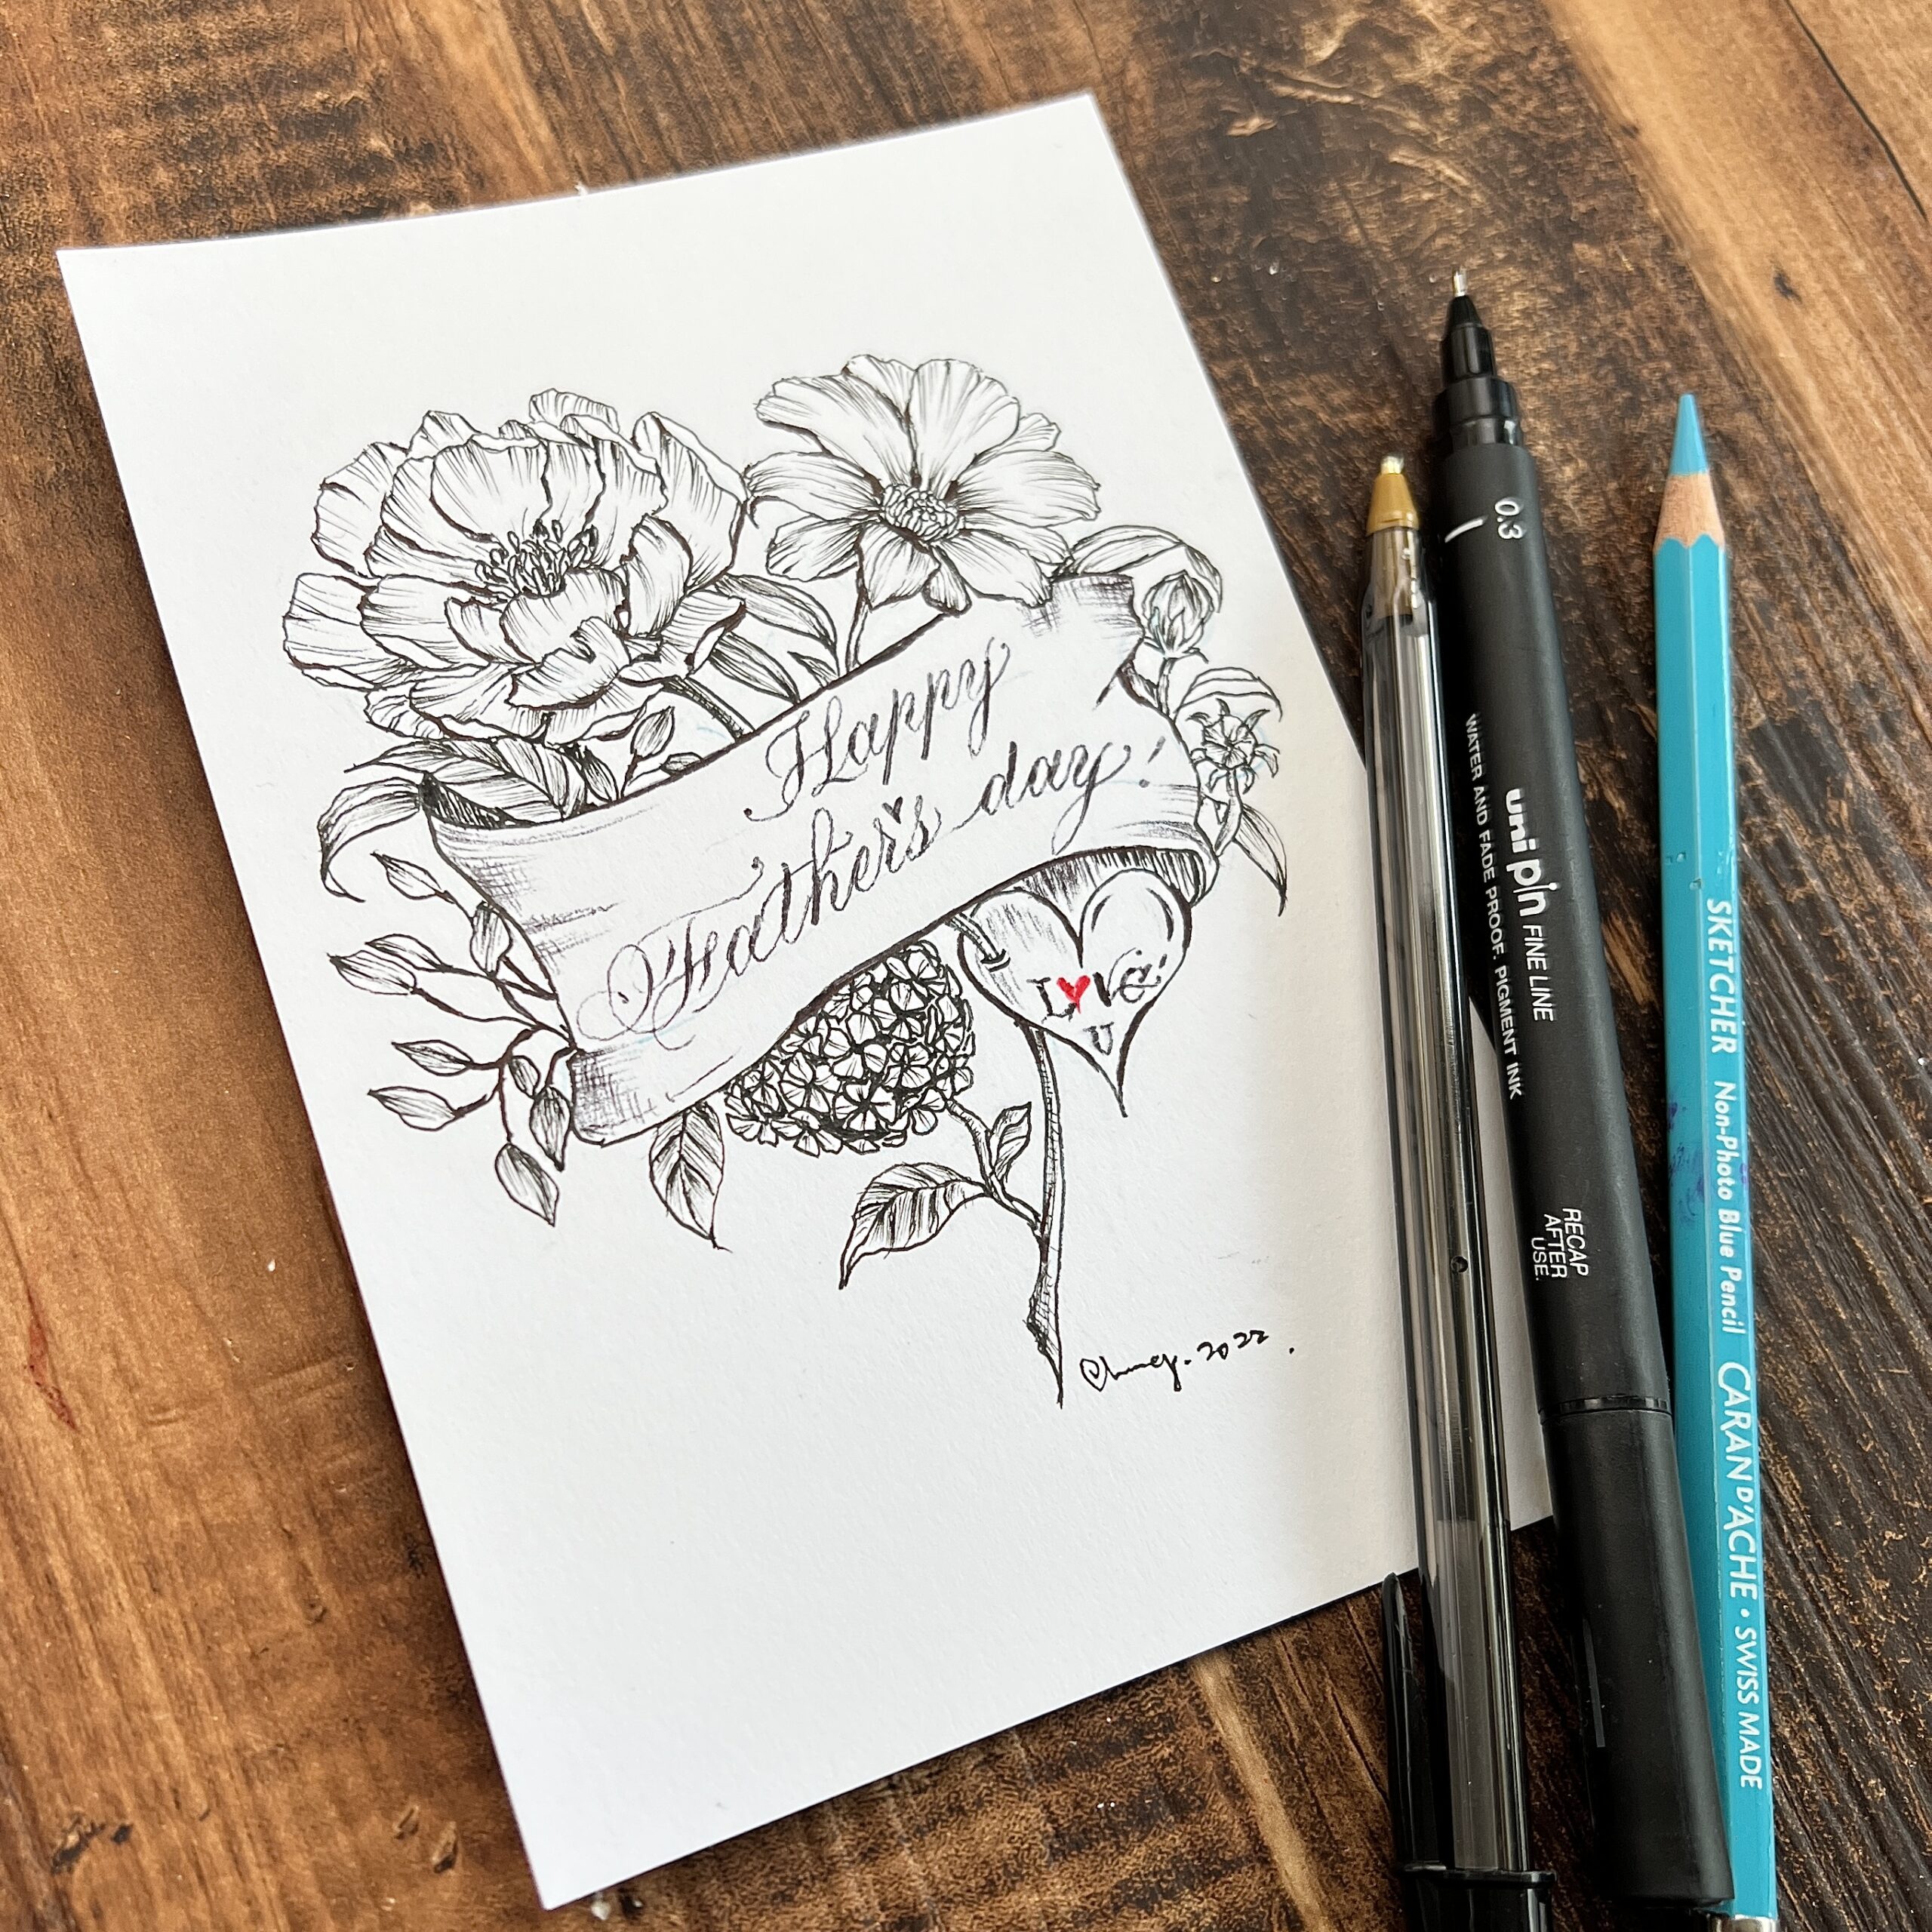 Happy
Father's day!
Love
U
Chung. 2022.
0.3
uni pin FINE LINE
WATER AND FADE PROOF. PIGMENT INK
RECAP
AFTER
USE.
SKETCHER Non-Photo Blue Pencil CARAN D'ACHE • SWISS MADE